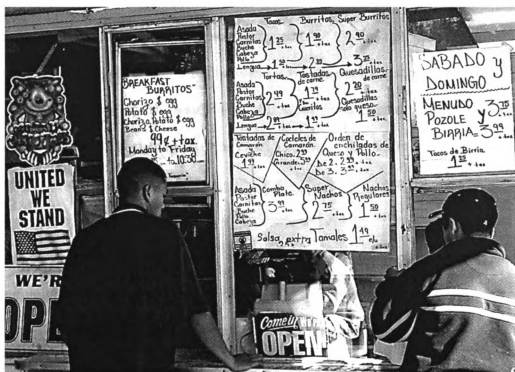 UNITED
WE
STAND
WE'R
OPE
BREAKFAST
BURRITOS"
Chorizo $ egg
Potato $ egg
Chorizo, Potato $ egg
Beans $ Cheese
99¢ + tax
Monday to Friday
to 10:30
Tacos
Burritos, Super Burritos
Asada
Pastor
Carnitas
Buche
Cabeza
Pollo
1.25
+ tax
1.90
+ tax
2.90
+ tax
Lengua
Tortas
Tostadas
de carne.
Quesadillas
de carne
Asada
Pastor
Carnitas
Buche
Cabeza
Pollo
2.49
2.20
+ tax
Quesadillas
solo queso.
1.50
+ tax
Lengua
Tostadas de
Camarón
y
Ceviche
1.99
+ tax
Cocteles de
Camarón.
Chico
Grande
Orden de
enchiladas de
Queso y Pollo.
De 2.
De 3.
Asada
Pastor
Carnitas
Buche
Pollo
Cabeza
Combo
Plate
3.99
+ tax
Super
Nachos
2.75
+ tax
Nachos
Regulares
1.50
+ tax
Salsa, extra
Tamales 1.49
c/u
SABADO y
DOMINGO
MENUDO
POZOLE y
BIRRIA
3.75
3.99
+ tax
Tacos de Birria
1.25
+ tax
Come In We're
OPEN